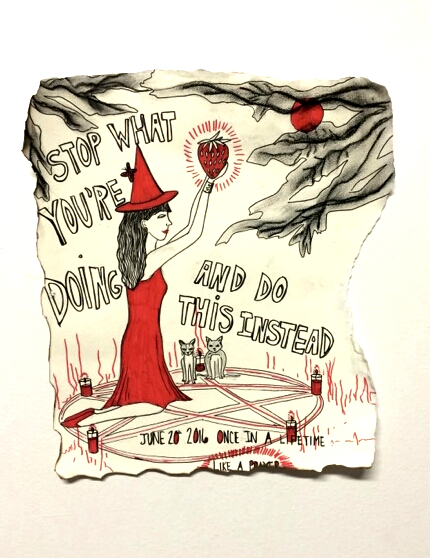 STOP WHAT
YOU'RE
DOING
AND DO
THIS INSTEAD
JUNE 20 2016 ONCE IN A LIFETIME
LIKE A PRAYER